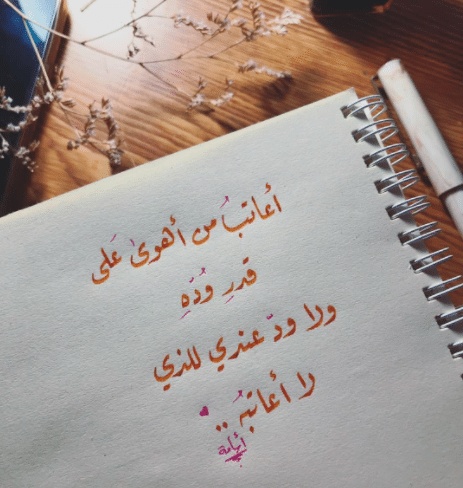 أعاتبُ من أهوىٰ عَلى
قدرِ وُدّهِ
ولا ودّ عندي للذي
لا أعاتبُه ..